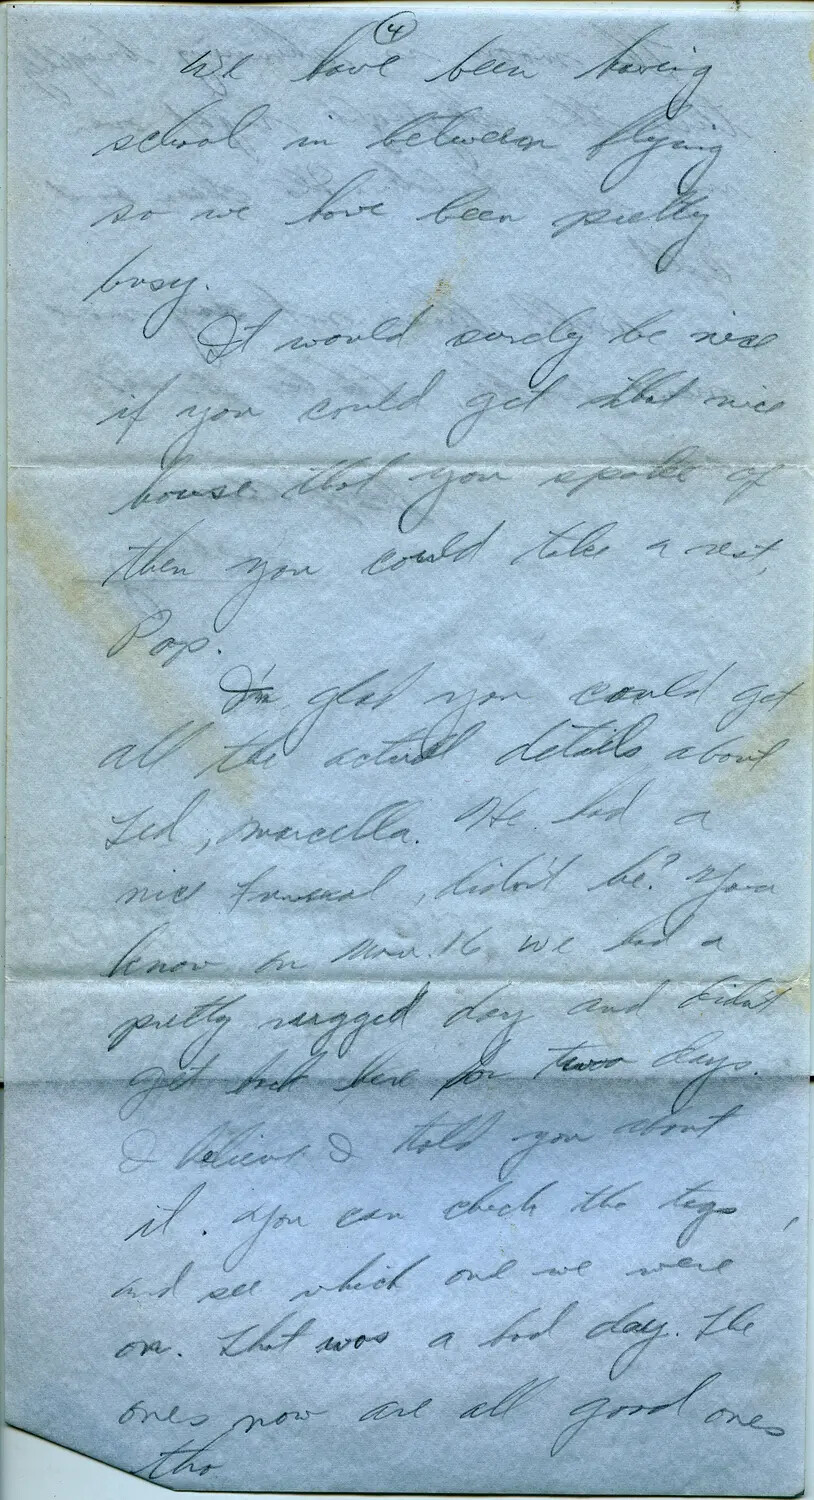 4
We have been having
school in between flying
so we have been pretty
busy.
It would surely be nice
if you could get that nice
house that you spoke of
then you could take a rest,
Pop.
I'm glad you could get
all the actual details about
Ted, Marcella. He had a
nice funeral, didn't he? You
know on Nov. 16 we had a
pretty rugged day and didn't
get back here for two days.
I believe I told you about
it. You can check the tags,
and see which one we were
on. That was a bad day. The
ones now are all good ones
tho.